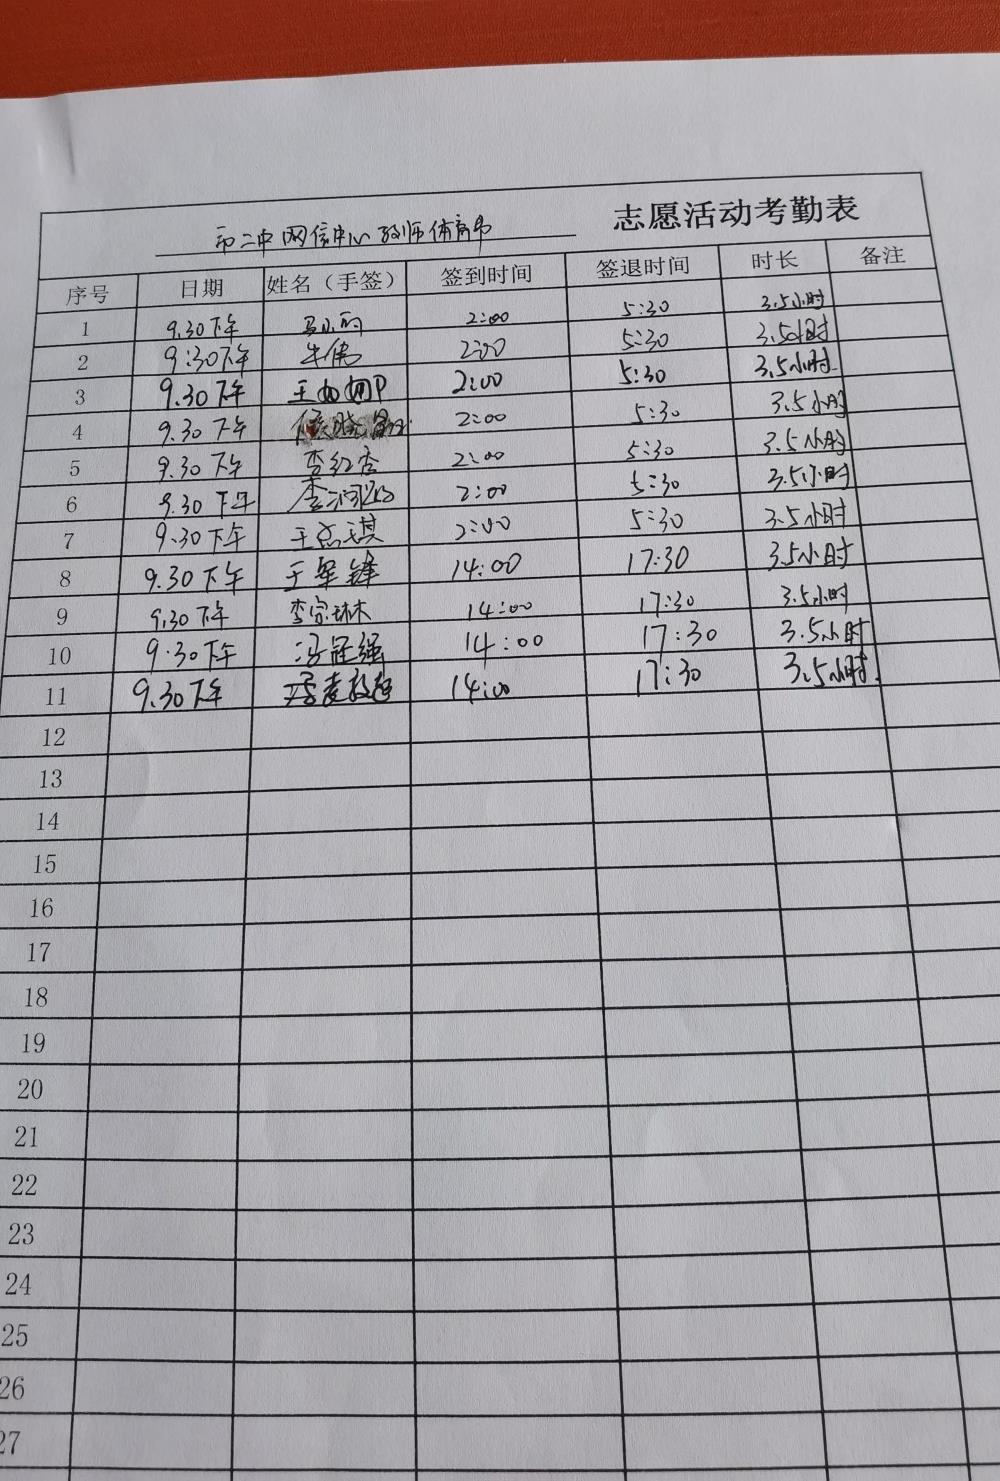 二中网信中心教师体育 志愿活动考勤表
序号 日期 姓名（手签） 签到时间 签退时间 时长 备注
1 9.30下午 2:00 5:30 3.5小时
2 9:30下午 牛伟 2:00 5:30 3.5小时
3 9.30下午 2:00 5:30 3.5小时
4 9.30下午 2:00 5:30 3.5小时
5 9.30下午 李红杏 2:00 5:30 3.5小时
6 9.30下午 2:00 5:30 3.5小时
7 9.30下午 2:00 5:30 3.5小时
8 9.30下午 于军锋 14:00 17:30 3.5小时
9 9.30下午 李宗琳 14:00 17:30 3.5小时
10 9.30下午 冯冠强 14:00 17:30 3.5小时
11 9.30下午 14:00 17:30 3.5小时
12
13
14
15
16
17
18
19
20
21
22
23
24
25
26
27